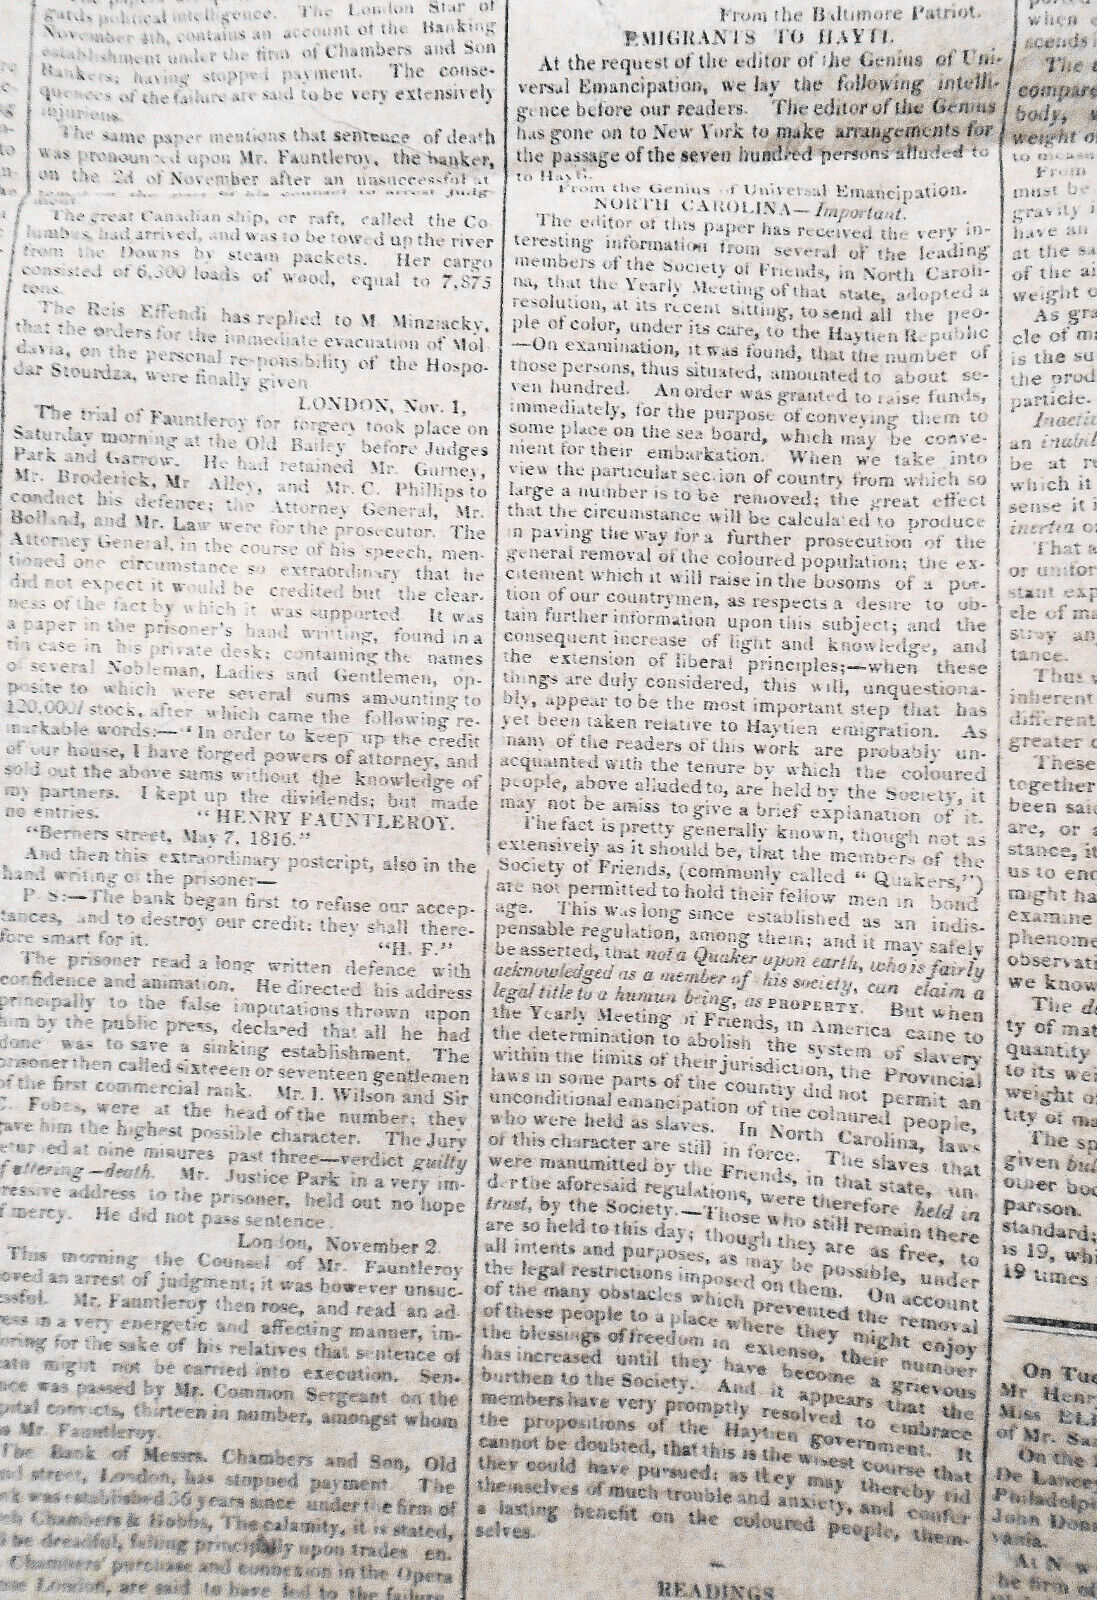 gards political intelligence. The London Star of
November 4th, contains an account of the Banking
establishment under the firm of Chambers and Son
Bankers; having stopped payment. The conse-
quences of the failure are said to be very extensively
injurious.
The same paper mentions that sentence of death
was pronounced upon Mr. Fauntleroy, the banker,
on the 2d of November after an unsuccessful at
The great Canadian ship, or raft, called the Co-
lumbus, had arrived, and was to be towed up the river
from the Downs by steam packets. Her cargo
consisted of 6,300 loads of wood, equal to 7,875
tons.
The Reis Effendi has replied to M. Minziacky,
that the orders for the immediate evacuation of Mol-
davia, on the personal responsibility of the Hospo-
dar Stourdza, were finally given
LONDON, Nov. 1,
The trial of Fauntleroy for forgery took place on
Saturday morning at the Old Bailey before Judges
Park and Garrow. He had retained Mr. Gurney,
Mr. Broderick, Mr Alley, and Mr C. Phillips to
conduct his defence; the Attorney General, Mr.
Bolland, and Mr. Law were for the prosecutor. The
Attorney General, in the course of his speech, men-
tioned one circumstance so extraordinary that he
did not expect it would be credited but the clear-
ness of the fact by which it was supported. It was
a paper in the prisoner's hand writing, found in a
tin case in his private desk; containing the names
of several Nobleman, Ladies and Gentlemen, op-
posite to which were several sums amounting to
120,000l stock, after which came the following re-
markable words:—"In order to keep up the credit
of our house, I have forged powers of attorney, and
sold out the above sums without the knowledge of
my partners. I kept up the dividends; but made
no entries. "HENRY FAUNTLEROY.
"Berners street, May 7, 1816."
And then this extraordinary postcript, also in the
hand writing of the prisoner—
P. S:—The bank began first to refuse our accep-
tances, and to destroy our credit: they shall there-
fore smart for it. "H. F."
The prisoner read a long written defence with
confidence and animation. He directed his address
principally to the false imputations thrown upon
him by the public press, declared that all he had
done was to save a sinking establishment. The
prisoner then called sixteen or seventeen gentlemen
of the first commercial rank. Mr. I. Wilson and Sir
C. Fobes, were at the head of the number; they
gave him the highest possible character. The Jury
at nine minures past three—verdict guilty
of uttering—death. Mr. Justice Park in a very im-
pressive address to the prisoner, held out no hope
of mercy. He did not pass sentence.
London, November 2.
This morning the Counsel of Mr. Fauntleroy
oved an arrest of judgment; it was however unsuc-
essful. Mr. Fauntleroy then rose, and read an ad-
ress in a very energetic and affecting manner, im-
oring for the sake of his relatives that sentence of
eath might not be carried into execution. Sen-
nce was passed by Mr. Common Sergeant on the
pital convicts, thirteen in number, amongst whom
s Mr. Fauntleroy.
The Bank of Messrs. Chambers and Son, Old
nd street, London, has stopped payment. The
nk was established 36 years since under the firm of
Chambers & Hobbs, The calamity, it is stated,
be dreadful, falling principally upon trades en.
Chambers' purchase and connexion in the Opera
use London, are said to have led to the failure.
From the Baltimore Patriot.
EMIGRANTS TO HAYTI.
At the request of the editor of the Genius of Uni-
versal Emancipation, we lay the following intelli-
gence before our readers. The editor of the Genius
has gone on to New York to make arrangements for
the passage of the seven hundred persons alluded to
to Hayti.
From the Genius of Universal Emancipation.
NORTH CAROLINA—Important.
The editor of this paper has received the very in-
teresting information from several of the leading
members of the Society of Friends, in North Caroli-
na, that the Yearly Meeting of that state, adopted a
resolution, at its recent sitting, to send all the peo-
ple of color, under its care, to the Haytien Republic
—On examination, it was found, that the number of
those persons, thus situated, amounted to about se-
ven hundred. An order was granted to raise funds,
immediately, for the purpose of conveying them to
some place on the sea board, which may be conve-
nient for their embarkation. When we take into
view the particular section of country from which so
large a number is to be removed; the great effect
that the circumstance will be calculated to produce
in paving the way for a further prosecution of the
general removal of the coloured population; the ex-
citement which it will raise in the bosoms of a por-
tion of our countrymen, as respects a desire to ob-
tain further information upon this subject; and the
consequent increase of light and knowledge, and
the extension of liberal principles;—when these
things are duly considered, this will, unquestiona-
bly, appear to be the most important step that has
yet been taken relative to Haytien emigration. As
many of the readers of this work are probably un-
acquainted with the tenure by which the coloured
people, above alluded to, are held by the Society, it
may not be amiss to give a brief explanation of it.
The fact is pretty generally known, though not as
extensively as it should be, that the members of the
Society of Friends, (commonly called "Quakers,")
are not permitted to hold their fellow men in bond
age. This was long since established as an indis-
pensable regulation, among them; and it may safely
be asserted, that not a Quaker upon earth, who is fairly
acknowledged as a member of his society, can claim a
legal title to a human being, as PROPERTY. But when
the Yearly Meeting of Friends, in America came to
the determination to abolish the system of slavery
within the limits of their jurisdiction, the Provincial
laws in some parts of the country did not permit an
unconditional emancipation of the coloured people,
who were held as slaves. In North Carolina, laws
of this character are still in force. The slaves that
were manumitted by the Friends, in that state, un-
der the aforesaid regulations, were therefore held in
trust, by the Society.—Those who still remain there
are so held to this day; though they are as free, to
all intents and purposes, as may be possible, under
the legal restrictions imposed on them. On account
of the many obstacles which prevented the removal
of these people to a place where they might enjoy
the blessings of freedom in extenso, their number
has increased until they have become a grievous
burthen to the Society. And it appears that the
members have very promptly resolved to embrace
the propositions of the Haytien government. It
cannot be doubted, that this is the wisest course that
they could have pursued: as they may thereby rid
themselves of much trouble and anxiety, and confer
a lasting benefit on the coloured people, them-
selves.
READINGS
when
scends
The
compare
body,
weight o
to measu
From
must be
gravity i
have an
at the sa
of the ai
weight o
As gra
cle of ma
is the su
the prod
particle.
Inactiv
an inabil
be at re
which it
sense it i
inertia o
That a
or unifor
stant exp
cle of ma
stroy an
tance.
Thus
inherent
different
greater
These
together
been said
are, or a
stance, it
us to end
might ha
examine
phenome
observati
we know
The de
ty of mat
quantity
to its wei
weight of
tity of ma
The sp
given bul
other boo
parison.
standard;
is 19, whi
19 times
On Tue
Mr Henr
Miss ELI
of Mr. Sa
On the
De Lance
Philadelp
John Donn
vania.
At New
he firm of